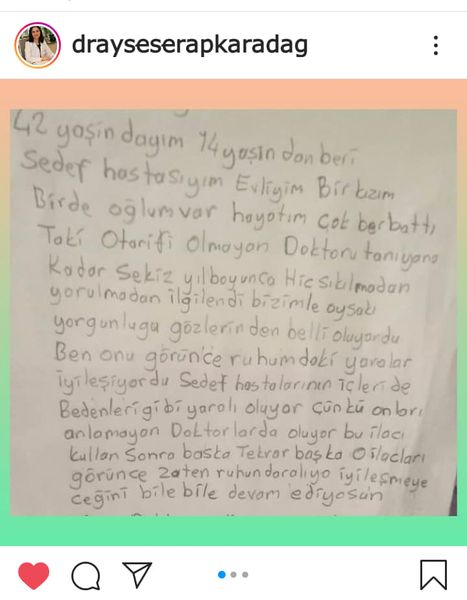 drayseserapkaradag
42 yaşin dayım 14 yaşın dan beri
Sedef hastasıyım Evliyim Bir kızım
Birde oğlum var hayatım çok berbattı
Taki Otarifi Olmayan Doktoru tanıyana
Kadar Sekiz yıl boyunca Hiç sıkılmadan
yorulmadan ilgilendi bizimle oysaki
yorgunlugu gözlerin den belli oluyordu
Ben onu görünce ruhumdaki yaralar
iyileşiyordu Sedef hastalarının içleri de
Bedenleri gibi yaralı oluyor çünkü onları
anlamayan Doktorlarda oluyor bu ilacı
kullan Sonra başka Tekrar başka O ilaçları
görünce zaten ruhun daralıyo iyileşmeye
ceğini bile bile devam ediyosun